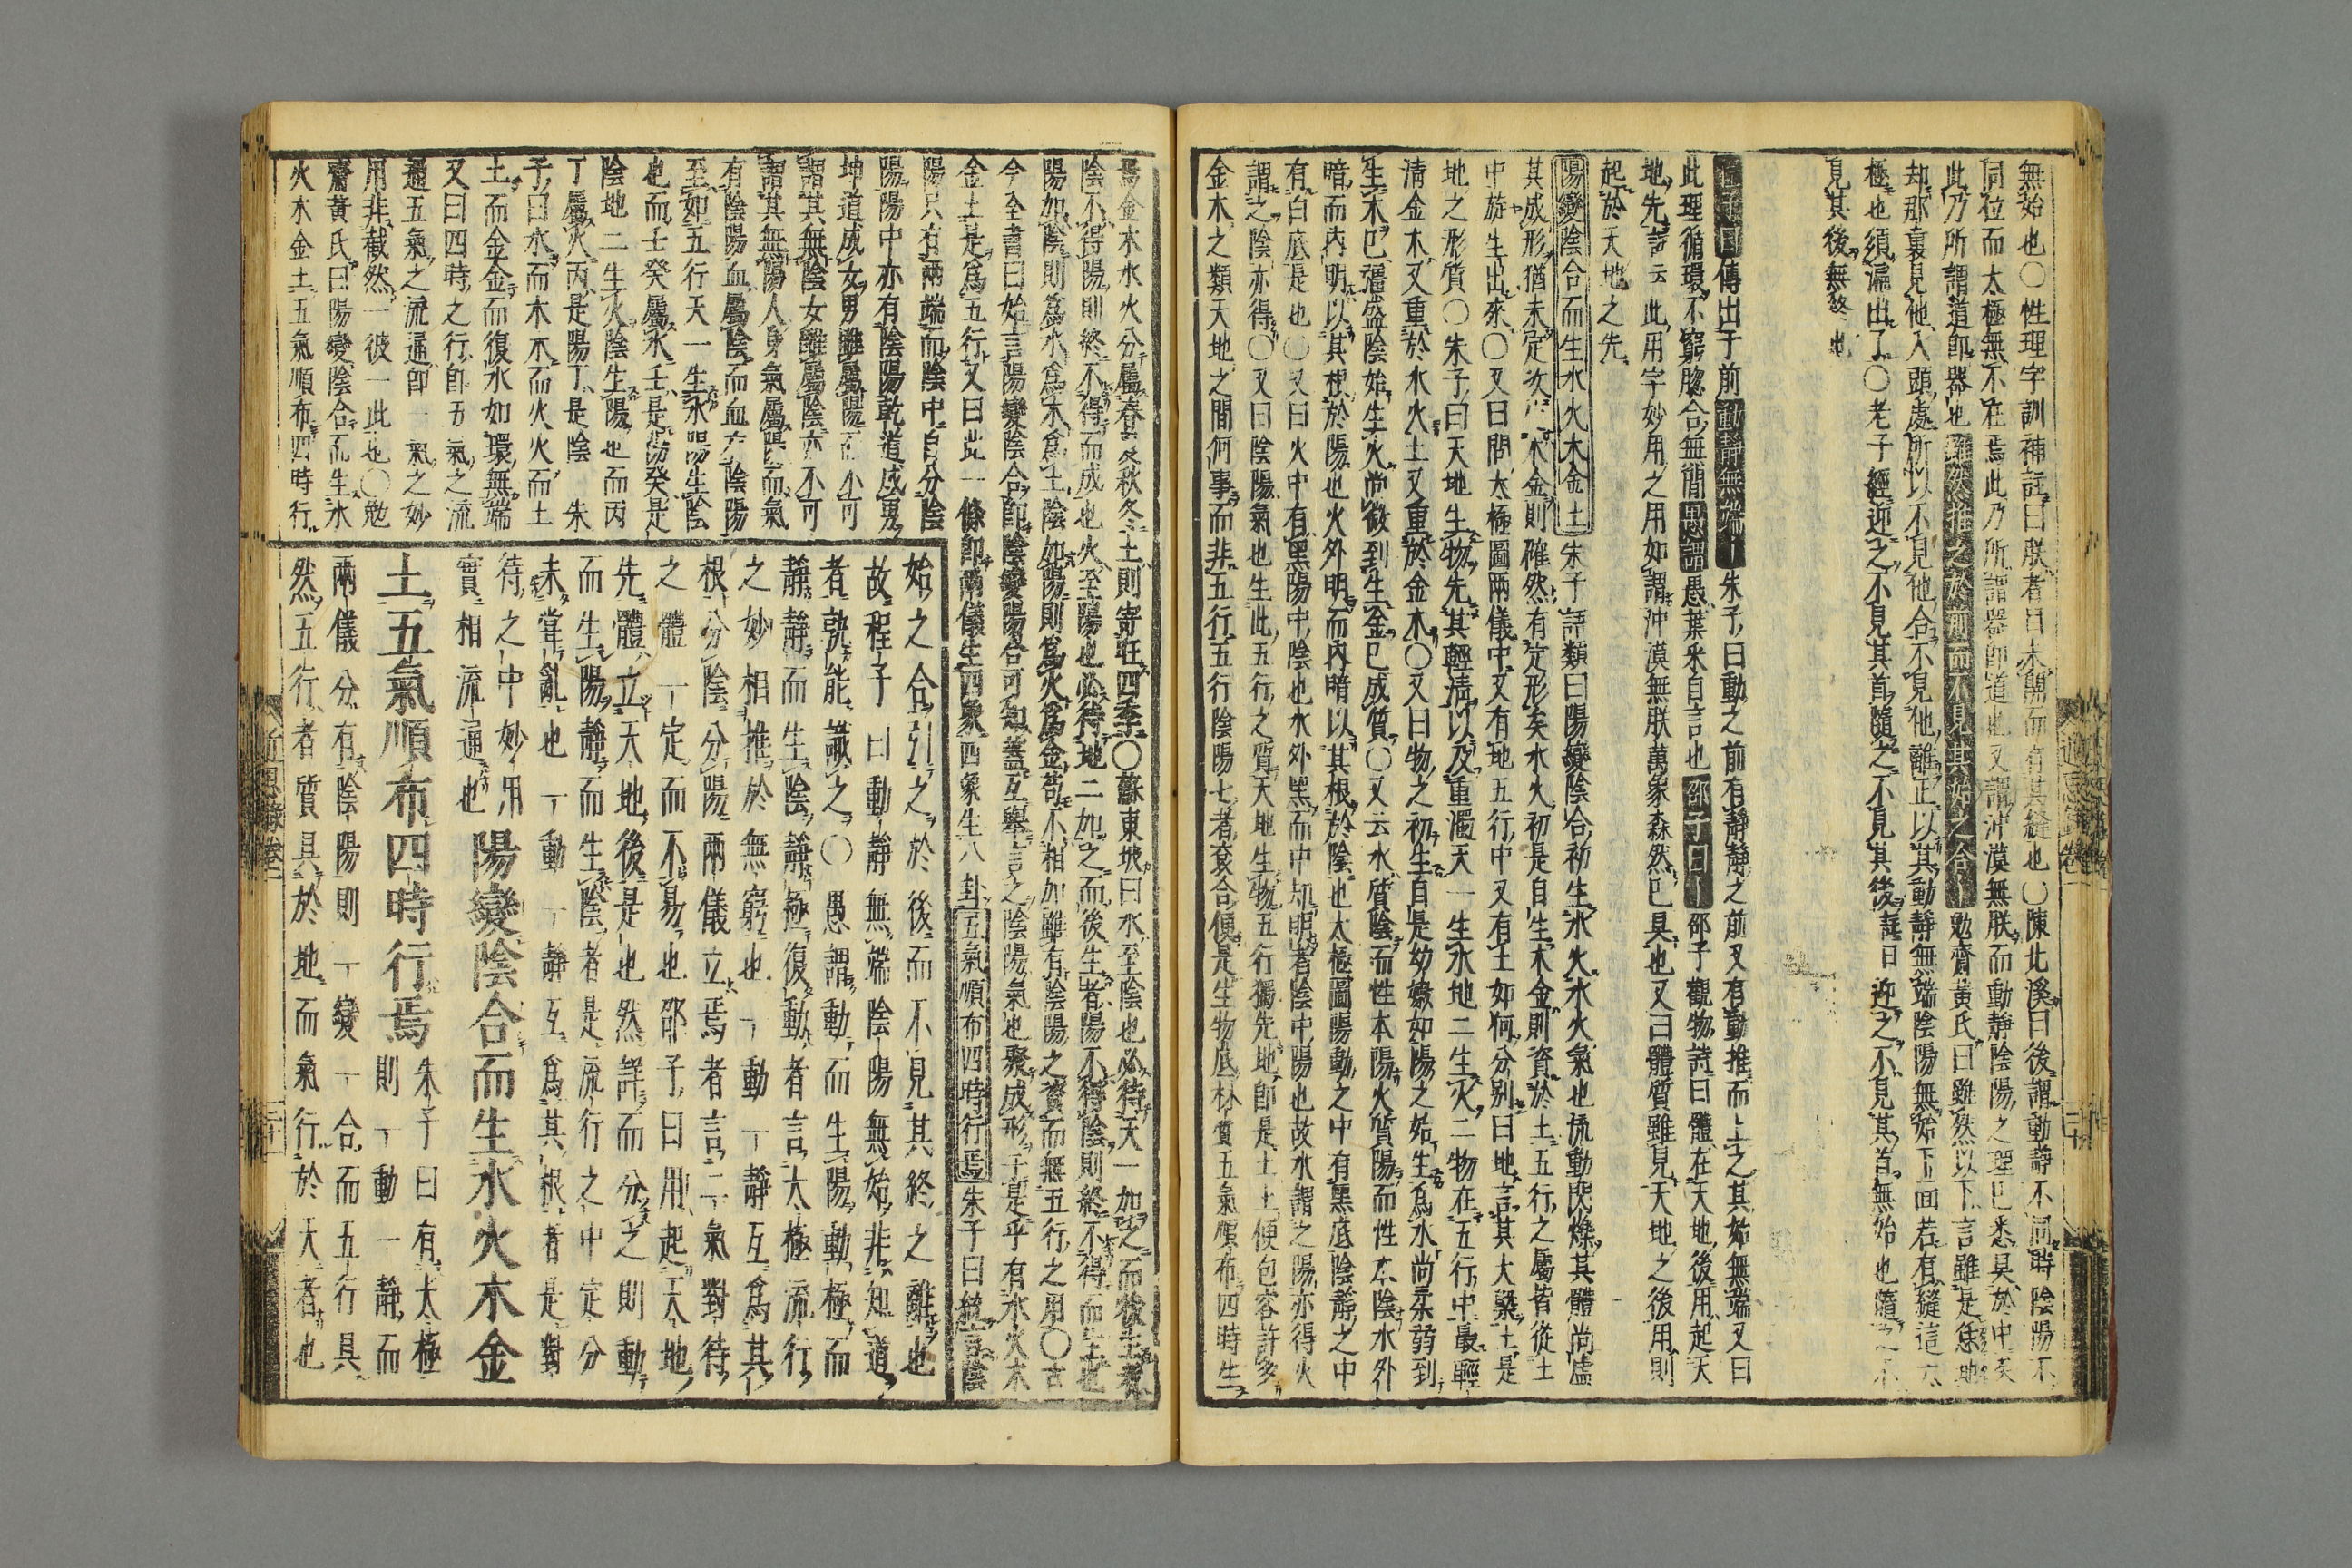 無始也○性理字訓補註曰朕者目未開而有其縫也○陳北溪曰後謂動靜不同時陰陽不
同位而太極無不在焉此乃所謂器即道也又謂沖漠無朕而動靜陰陽之理已悉具於中矣
此乃所謂道即器也雖然推之於前而不見其始之合勉齋黃氏曰雖然以下言雖是恁地
却那裏見他入頭處所以不見他合不見他離正以其動靜無端陰陽無始下面若有縫這太
極也須漏出了○老子經迎之不見其首隨之不見其後註曰迎之不見其首無始也隨之不
見其後無終也
程子曰傳出于前動靜無端朱子曰動之前有靜靜之前又有動推而上之其始無端又曰
此理循環不窮脗合無間愚謂愚葉采自言也邵子曰邵子觀物詩曰體在天地後用起天
地先詩云此用字妙用之用如謂沖漠無朕萬象森然已具也又曰體質雖見天地之後用則
起於天地之先
陽變陰合而生水火木金土朱子語類曰陽變陰合初生水火水火氣也流動閃爍其體尚虛
其成形猶未定次生木金則確然有定形矣水火初是自生木金則資於土五行之屬皆從土
中旋生出來○又曰問太極圖兩儀中又有地五行中又有土如何分別曰地言其大槩土是
地之形質○朱子曰天地生物先其輕清以及重濁天一生水地二生火二物在五行中最輕
清金木又重於水火土又重於金木○又曰物之初生自是幼嫩如陽之始生爲水尚柔弱到
生木已彊盛陰始生火尚微到生金已成質○又云水質陰而性本陽火質陽而性本陰水外
暗而内明以其根於陽也火外明而内暗以其根於陰也太極圖陽動之中有黑底陰靜之中
有白底是也○又曰火中有黑陽中陰也水外黑而中却明者陰中陽也故水謂之陽亦得火
謂之陰亦得○又曰陰陽氣也生此五行之質天地生物五行獨先地即是土土便包容許多
金木之類天地之間何事而非五行五行陰陽七者衮合便是生物底材質五氣順布四時生
焉金木水火分屬春夏秋冬土則寄旺四季○蘇東坡曰水至陰也必待天一加之而後生者
陰不得陽則終不得而成也火至陽也必待地二加之而後生者陽不得陰則終不得而生也
陽加陰則爲水爲木爲土陰加陽則爲火爲金苟不相加雖有陰陽之資而無五行之用○古
今全書曰始言陽變陰合即陰變陽合可知蓋互舉言之陰陽氣也聚成形于是乎有水火木
金土是爲五行又曰此一條即兩儀生四象四象生八卦五氣順布四時行焉朱子曰統言陰
陽只有兩端而陰中自分陰
陽陽中亦有陰陽乾道成男
坤道成女男雖屬陽而不可
謂其無陰女雖屬陰亦不可
謂其無陽人身氣屬陽而氣
有陰陽血屬陰而血有陰陽
至如五行天一生水陽生陰
也而壬癸屬水壬是陽癸是
陰地二生火陰生陽也而丙
丁屬火丙是陽丁是陰　朱
子曰水而木木而火火而土
土而金金而復水如環無端
又曰四時之行即五氣之流
通五氣之流通即一氣之妙
用非截然一彼一此也○勉
齋黃氏曰陽變陰合而生水
火木金土五氣順布四時行
始之合引之於後而不見其終之離也
故程子曰動靜無端陰陽無始非知道
者孰能識之○愚謂動而生陽動極而
靜靜而生陰靜極復動者言太極流行
之妙相推於無窮也一動一靜互爲其
根分陰分陽兩儀立焉者言二氣對待
之體一定而不易也邵子曰用起天地
先體立天地後是也然詳而分之則動
而生陽靜而生陰者是流行之中定分
未嘗亂也一動一靜互爲其根者是對
待之中妙用
實相流通也陽變陰合而生水火木金
土五氣順布四時行焉朱子曰有太極
則一動一靜而
兩儀分有陰陽則一變一合而五行具
然五行者質具於地而氣行於天者也
近思錄卷一